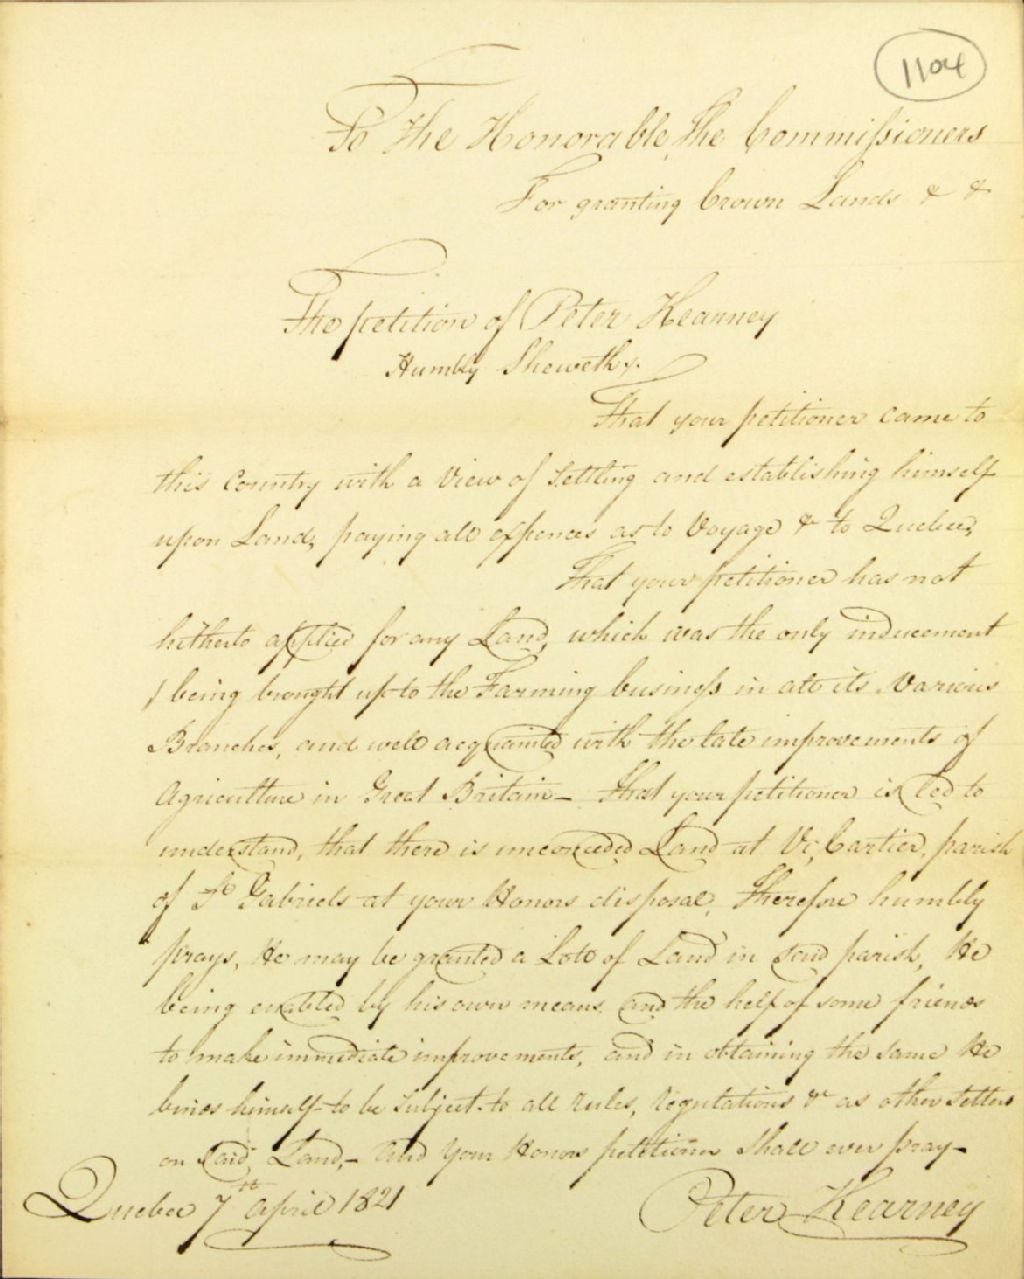 1104
To The Honorable, The Commissioners
For granting Crown Lands & &
The petition of Peter Kearney
Humbly Sheweth,
That your petitioner came to
this Country with a View of Settling and establishing himself
upon Land, paying all expences as to Voyage & to Quebec,
That your petitioner has not
hitherto applied for any Land, which was the only inducement
being brought up to the Farming business in all its Various
Branches, and well acquainted with the late improvements of
Agriculture in Great Britain— That your petitioner is led to
understand, that there is unconceded Land at Vt. Cartier, parish
of St Gabriels at your Honors disposal, Therefore humbly
prays, He may be granted a Lott of Land in said parish, He
being enabled by his own means, and the help of some friends
to make immediate improvements, and in obtaining the same He
binds himself to be Subject to all Rules, Regulations & as other Settlers
on Said, Land,— And Your Honors petitioner Shall ever pray—
Quebec 7th April 1821
Peter Kearney